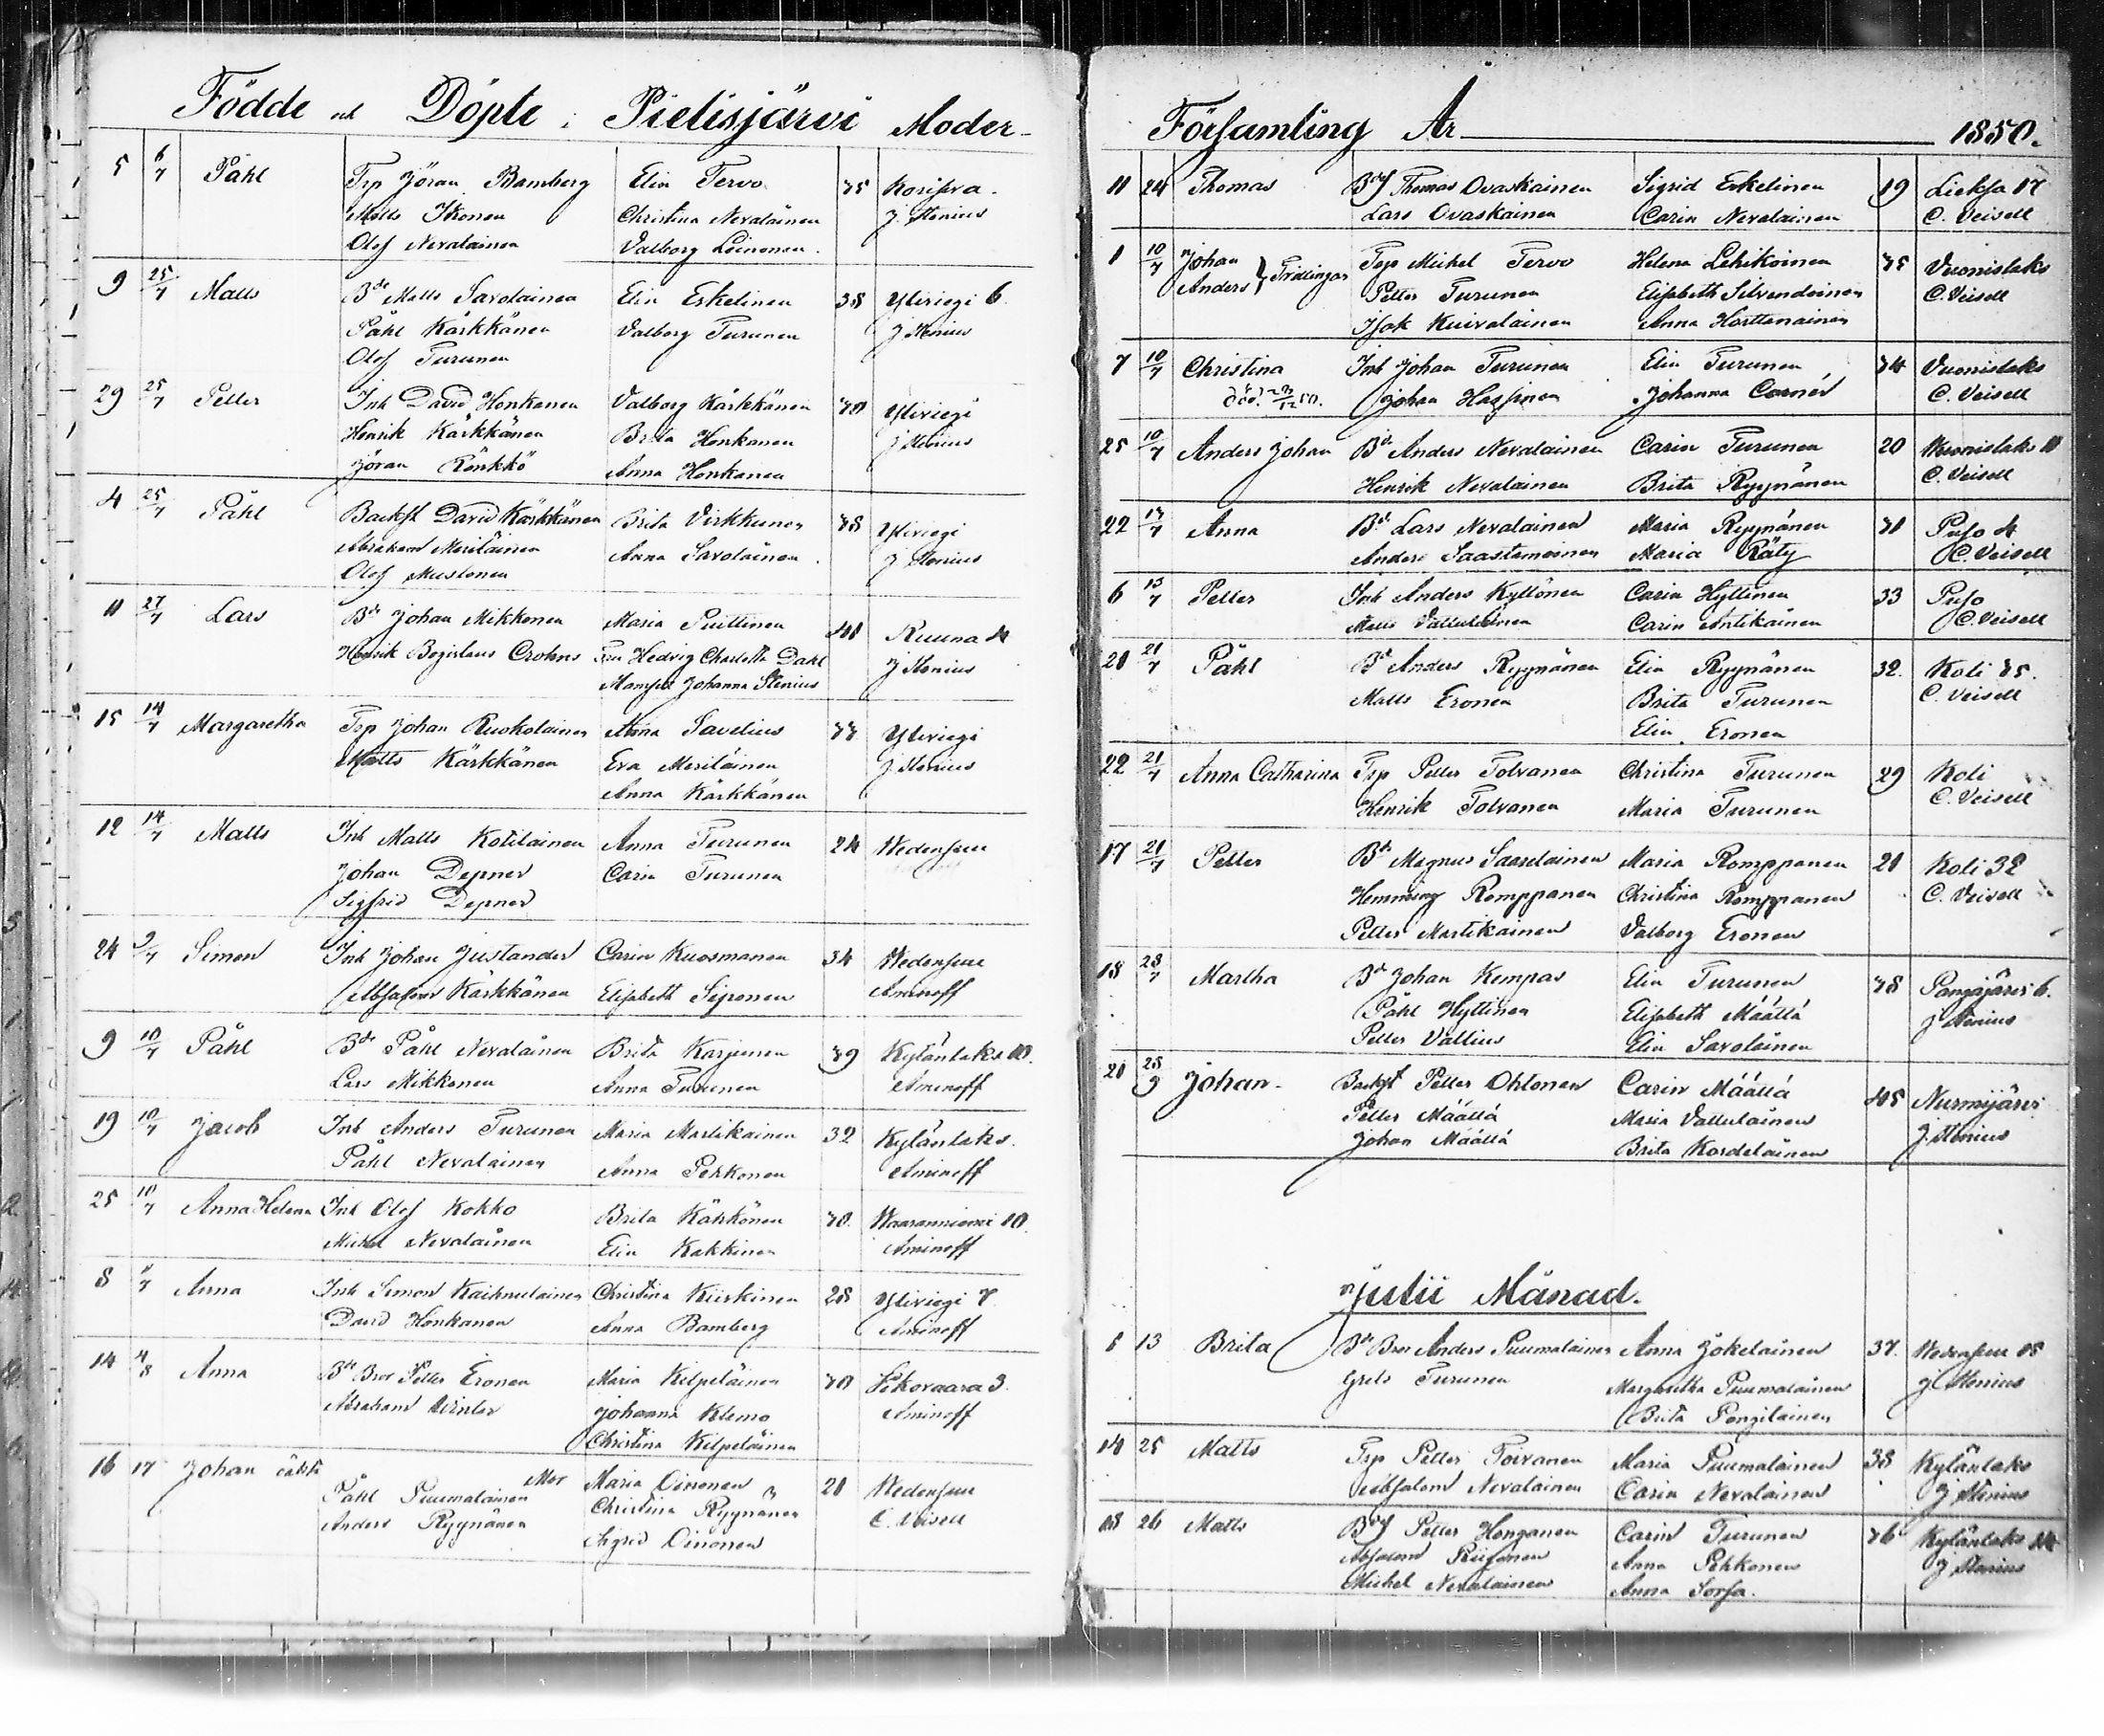 Födde och Döpte i Pielisjärvi Moder-
5 6/7 Påhl Trp Jöran Bamberg Elin Tervo 35 Koriseva
Matts Ikonen Christina Nevalainen J. Stenius
Olof Nevalainen Valborg Leinonen
9 25/7 Matts Bde Matts Savolainen Elin Eskelinen 38 Yliviegi 6
Påhl Kärkkänen Valborg Turunen J Stenius
Olof Turunen
29 25/7 Petter Inh David Honkanen Valborg Kärkkänen 30 Yliviegi
Henrik Kärkkänen Brita Honkanen J Stenius
Jöran Rönkkö Anna Honkanen
4 25/7 Påhl Backst David Kärkkänen Brita Virkkunen 38 Yliviegi
Abraham Meriläinen Anna Savolainen J Stenius
Olof Mustonen
11 27/7 Lars Bde Johan Mikkonen Maria Puittinen 41 Ruuna 4
Henrik Bogislaus Crohns Fru Hedvig Charlotta Dahl J Stenius
Mamsell Johanna Stenius
15 14/7 Margaretha Trp Johan Ruokolainen Anna Savelius 33 Yliviegi
Matts Kärkkänen Eva Meriläinen J Stenius
Anna Kärkkänen
12 14/7 Matts Inh Matts Kotilainen Anna Turunen 24 Wedensuu
Johan Depner Carin Turunen
Sigfrid Depner
24 9/7 Simon Inh Johan Justander Carin Kuosmanen 34 Wedensuu
Absalom Kärkkänen Elisabeth Siponen Aminoff
9 10/7 Påhl Bde Påhl Nevalainen Brita Karjunen 39 Kylänlaks 10.
Lars Mikkonen Anna Turunen Aminoff
19 10/7 Jacob Inh Anders Turunen Maria Martikainen 32 Kylänlaks.
Påhl Nevalainen Anna Pehkonen Aminoff
25 10/7 Anna Helena Inh Olof Kokko Brita Kähkönen 30. Waaranniemi 10.
Michel Nevalainen Elin Kakkinen Aminoff
8 /7 Anna Inh Simon Kaihnulainen Christina Kiiskinen 28 Yliviegi 7
David Honkanen Anna Bamberg Aminoff
14 4/8 Anna Bde Bror Petter Eronen Maria Kilpeläinen 30 Sikovaara 3.
Abraham Winter Johanna Klemo Aminoff
Christina Kilpeläinen
16 17 Johan oäkta Mor Maria Oinonen 21 Wedensuu
Påhl Puumalainen Christina Ryynänen C. Veisell
Anders Ryynänen Sigrid Oinonen
Församling År 1850.
11 24 Thomas Bdeson Thomas Ovaskainen Sigrid Eskelinen 19 Lieksa 17
Lars Ovaskainen Carin Nevalainen C. Veisell
1 10/7 Johan Anders } Trillingar Trp Michel Tervo Helena Lehikoinen 35 Vuonislaks
Petter Turunen Elisabeth Silvendoinen C. Veisell
Isak Kuivalainen Anna Horttanainen
7 10/7 Christina Inh Johan Turunen Elin Turunen 34 Vuonislaks
död Johan Hassinen Johanna Cornér C. Veisell
25 10/7 Anders Johan Bde Anders Nevalainen Carin Turunen 20 Wuonislaks 11
Henrik Nevalainen Brita Ryynänen C. Veisell
22 13/7 Anna Bde Lars Nevalainen Maria Ryynänen 31 Puso 4
Anders Saastamoinen Maria Räty C. Veisell
6 13/7 Petter Inh Anders Kyllönen Carin Hyttinen 33 Puso
Matts Vattulainen Carin Antikainen C. Veisell
20 21/7 Påhl Bde Anders Ryynänen Elin Ryynänen 32. Koli 35.
Matts Eronen Brita Turunen C. Veisell
Elin Eronen
22 21/7 Anna Catharina Trp Petter Tolvanen Christina Turunen 29 Koli
Henrik Tolvanen Maria Turunen C. Veisell
17 21/7 Petter Bde Magnus Saarelainen Maria Romppanen 21 Koli 32
Hemming Romppanen Christina Romppanen C. Veisell
Petter Martikainen Valborg Eronen
18 28/7 Martha Bde Johan Kempas Elin Turunen 38 Pangajärvi 6.
Påhl Hyttinen Elisabeth Määttä J Stenius
Petter Vallius Elin Savolainen
20 28/9 Johan Backst Petter Ohtonen Carin Määttä 45 Nurmijärvi
Petter Määttä Maria Vattulainen J. Stenius
Johan Määttä Brita Kordelainen
Julii Månad.
1 13 Brita Bde Bror Anders Puumalainen Anna Jokelainen 37. Wedensuu 18
Grels Turunen Margaretha Puumalainen J Stenius
Brita Pongilainen
14 25 Matts Trp Petter Toivanen Maria Puumalainen 38 Kylänlaks
Absalom Nevalainen Carin Nevalainen J Stenius
18 26 Matts Bdeson Petter Honganen Carin Turunen 36 Kylänlaks 14
Absalom Piiponen Anna Pehkonen J Stenius
Michel Nevalainen Anna Sorsa.